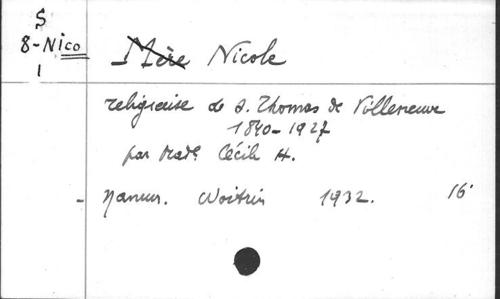 S
8-Nico
1
Mère Nicole
religieuse de S. Thomas de Villeneuve
1840-1927
par Mad. Cécile H.
- Namur. Woitrin 1932. 16°